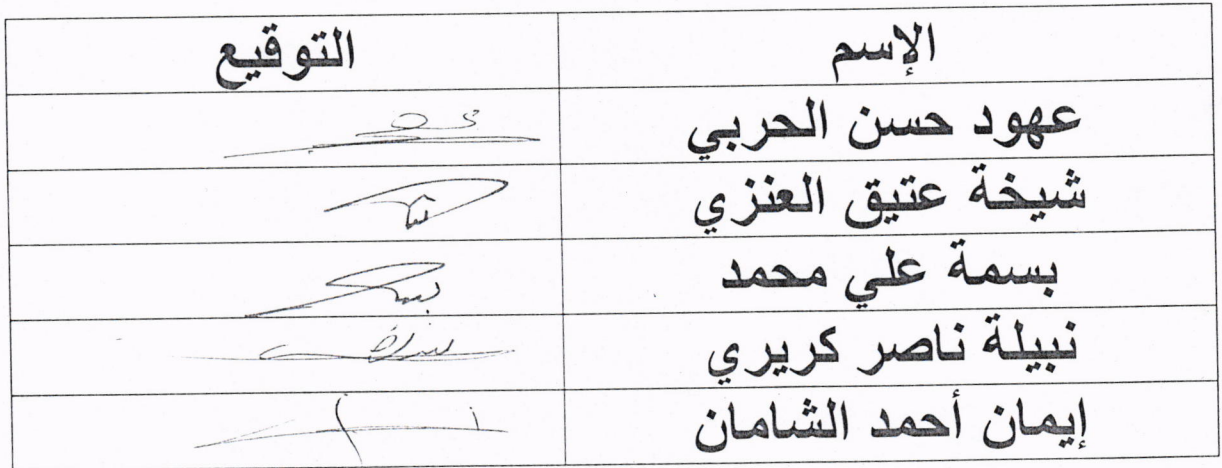 الإسم التوقيع
عهود حسن الحربي
شيخة عتيق العنزي
بسمة علي محمد
نبيلة ناصر كريري
إيمان أحمد الشامان